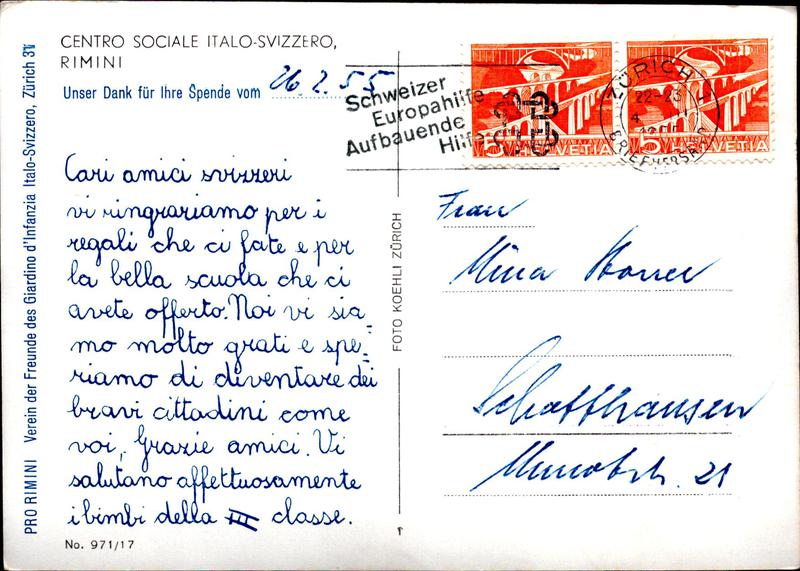 CENTRO SOCIALE ITALO-SVIZZERO,
RIMINI
Unser Dank für Ihre Spende vom 26.2.55
Schweizer
Europahilfe
Aufbauende
Hilfe
ZÜRICH
22-23
BRIEFVERSAND
5 HELVETIA
5 HELVETIA
Cari amici svizzeri
vi ringraziamo per i
regali che ci fate e per
la bella scuola che ci
avete offerto. Noi vi sia_
mo molto grati e spe_
riamo di diventare dei
bravi cittadini come
voi, Grazie amici. Vi
salutano affettuosamente
i bimbi della III classe.
No. 971/17
PRO RIMINI Verein der Freunde des Giardino d'Infanzia Italo-Svizzero, Zürich 31
FOTO KOEHLI ZÜRICH
Frau
Mina
Schaffhausen
21